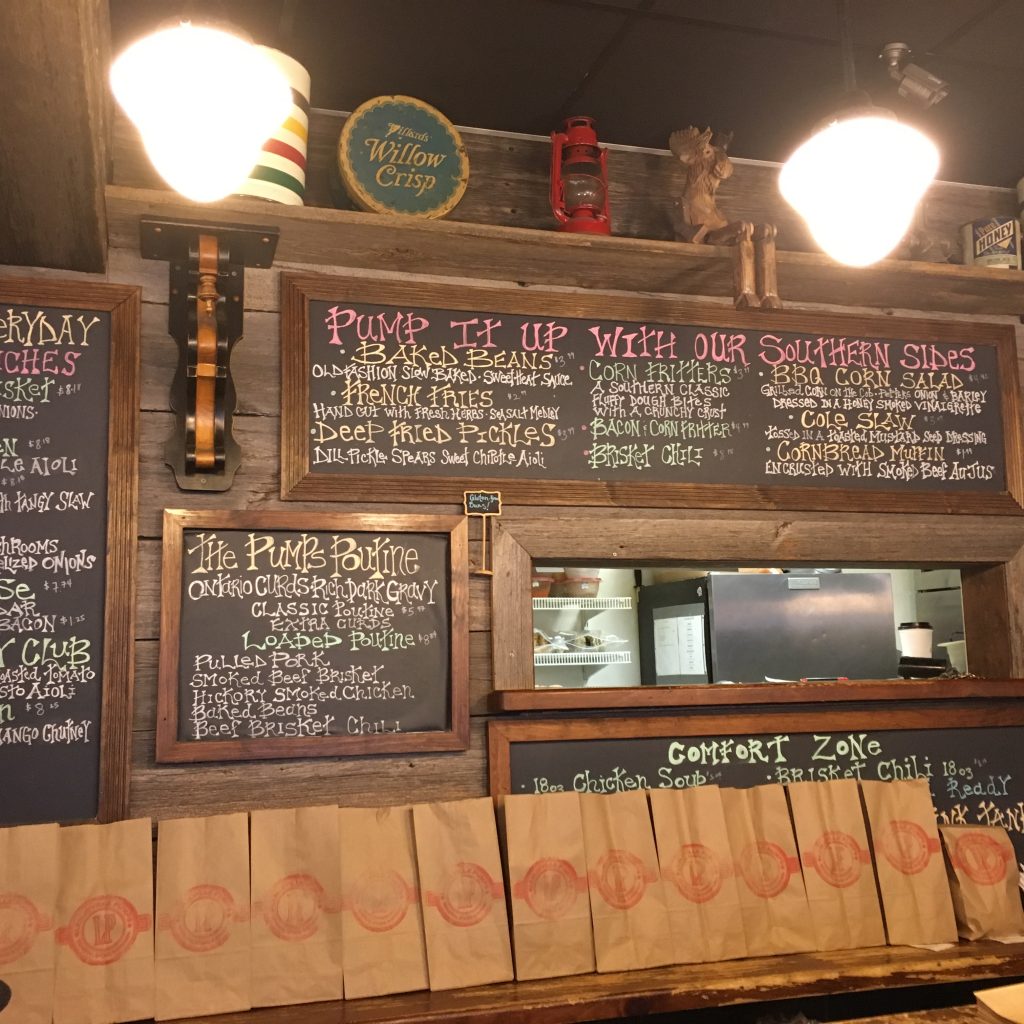 Willard's
Willow
Crisp
HONEY
PUMP IT UP WITH OUR SOUTHERN SIDES
BAKED BEANS $3.99
OLD FASHION SLOW BAKED · SWEET HEAT SAUCE
FRENCH FRIES $2.99
HAND CUT WITH FRESH HERBS · SEA SALT MEDLEY
DEEP FRIED PICKLES $3.99
DILL PICKLE SPEARS SWEET CHIPOTLE AIOLI
CORN FRITTERS $3.99
A SOUTHERN CLASSIC
FLUFFY DOUGH BITES
WITH A CRUNCHY CRUST
BACON & CORN FRITTER $4.99
BRISKET CHILI
BBQ CORN SALAD
GRILLED CORN ON THE COB · PEPPERS ONION & BARLEY
DRESSED IN A HONEY SMOKED VINAIGRETTE
COLE SLAW
TOSSED IN A TOASTED MUSTARD SEED DRESSING
CORNBREAD MUFFIN
ENCRUSTED WITH SMOKED BEEF AU JUS
ERYDAY
ICHES
ISKET $8.18
NIONS
EN $8.18
LE AIOLI
$8.18
TH TANGY SLAW
SHROOMS
ELIZED ONIONS
SE $7.74
DAR
BACON $1.25
Y CLUB
OASTED TOMATO
STO AIOLI
N $8.25
MANGO CHUTNEY
Gluten-free
Buns!
THE PUMPS POUTINE
ONTARIO CURDS · RICH DARK GRAVY
CLASSIC POUTINE $5.99
EXTRA CURDS
LOADED POUTINE
PULLED PORK
SMOKED BEEF BRISKET
HICKORY SMOKED CHICKEN
BAKED BEANS
BEEF BRISKET CHILI
COMFORT ZONE
18oz CHICKEN SOUP · BRISKET CHILI 18oz
REDDY
INK TANK